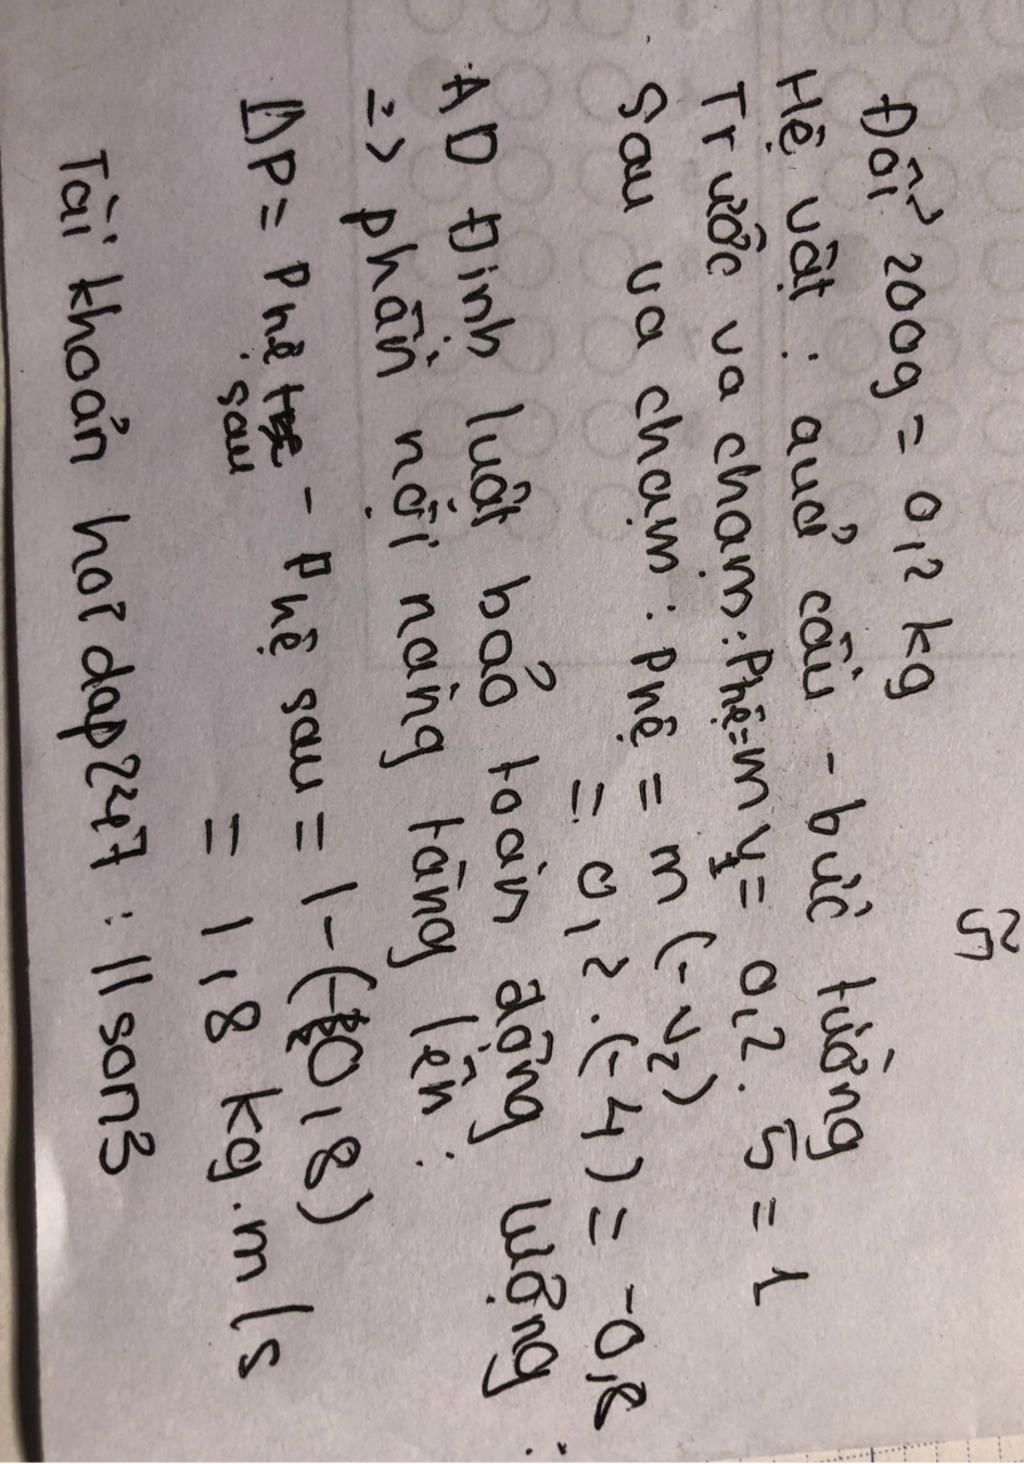 25
Đổi 200g = 0,2 kg
Hệ vật : quả cầu - bức tường
Trước va chạm : Phệ = m v1 = 0,2 . 5 = 1
Sau va chạm : Phệ = m (-v2)
= 0,2 . (-4) = -0,8
AD Định luật bảo toàn động lượng :
=> phần nội năng tăng lên :
ΔP = Phệ sau - Phệ sau = 1 - (-0,8)
= 1,8 kg.m/s
Tài khoản hoidap247 : 11son3